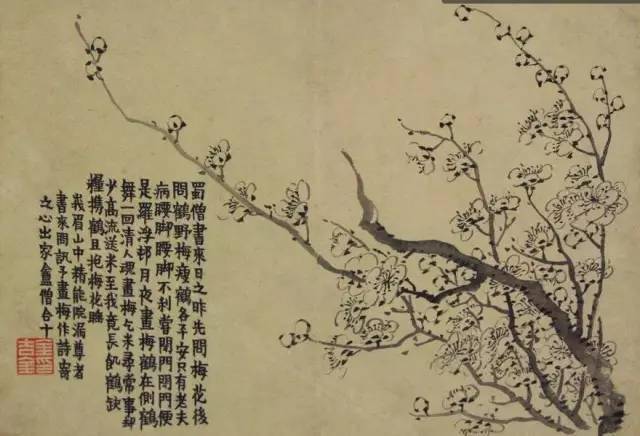 蜀僧書來日之昨先問梅花後
問鶴野梅瘦鶴各平安只有老夫
病腰脚腰脚不利嘗閉門閉門便
是羅浮邨月夜畫梅鶴在側鶴
舞一回清人魂畫梅乞米尋常事却
少高流送米至我竟長飢鶴缺
糧攜鶴且抱梅花睡
峩眉山中精能院漏尊者
書來兩訊予畫梅作詩寄
之心出家盦僧合十